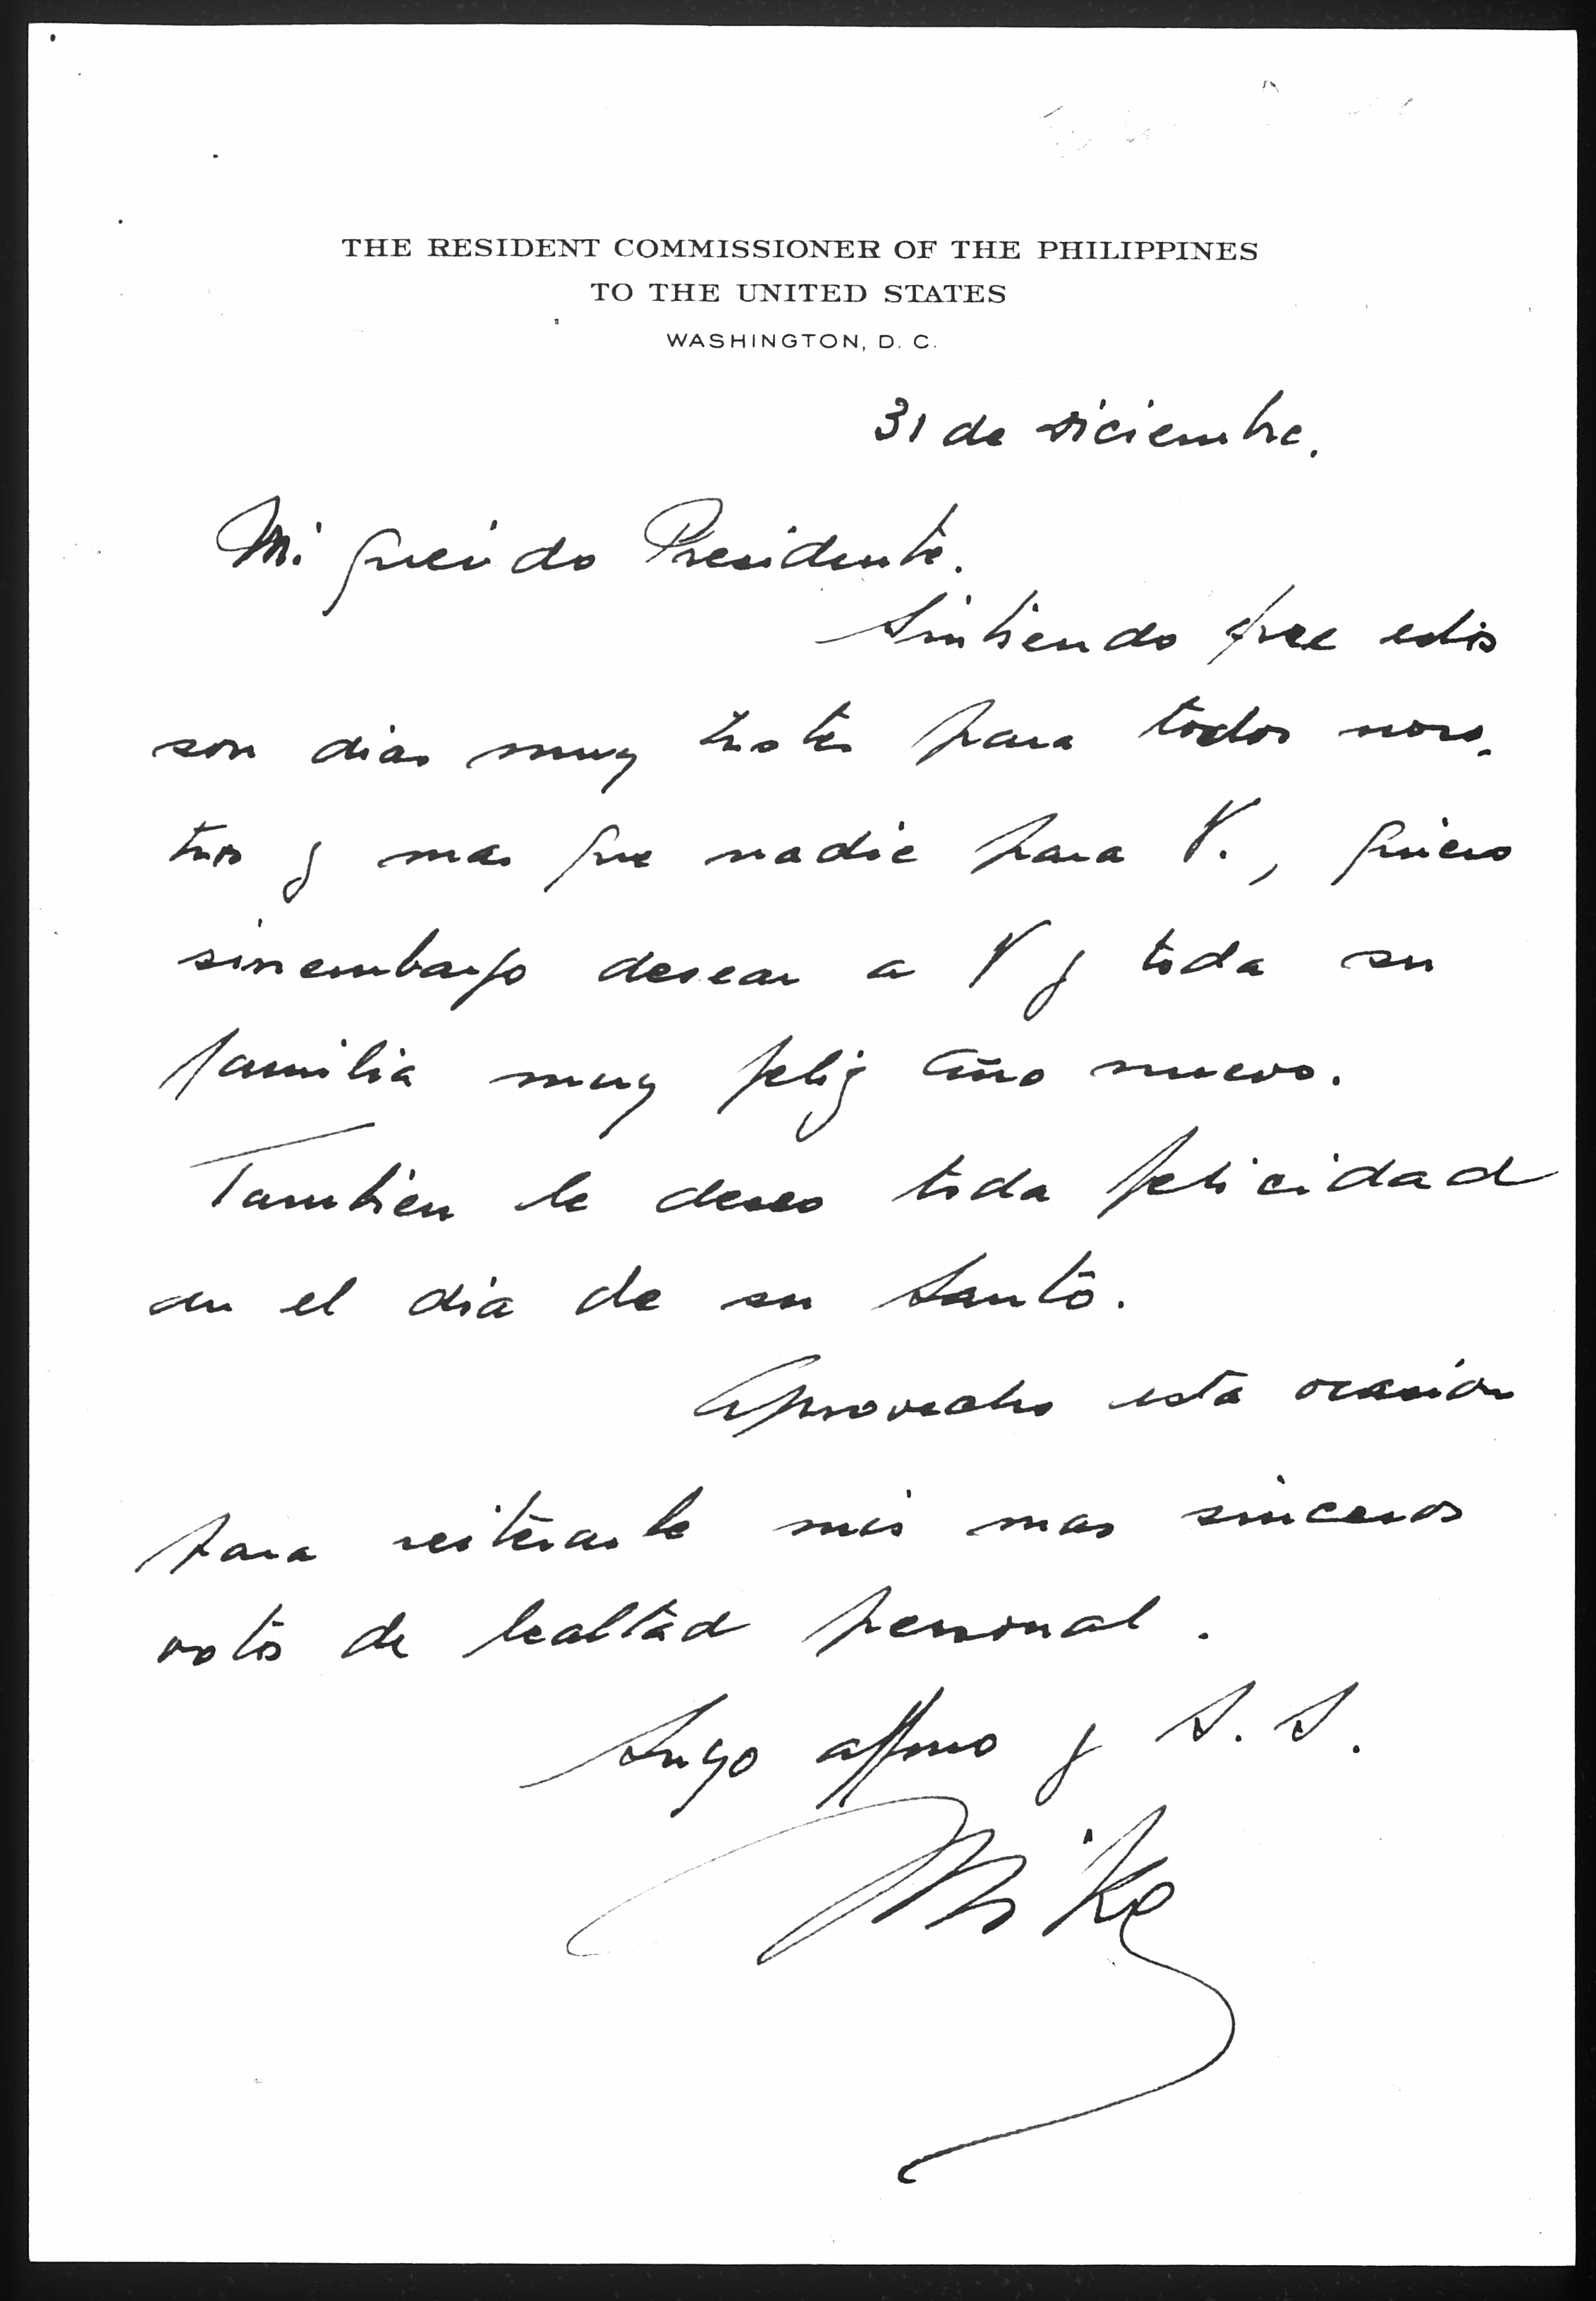 THE RESIDENT COMMISSIONER OF THE PHILIPPINES
TO THE UNITED STATES
WASHINGTON, D. C.
31 de diciembre.
Mi querido Presidente.
Sintiendo que estos
son dias muy tristes para todos noso-
tros y mas que nadie para V., quiero
sinembargo desear a V y toda su
familia muy feliz año nuevo.
Tambien le deseo toda felicidad
en el dia de su Santo.
Aprovecho esta ocasión
para reiterarle mis mas sinceros
votos de lealtad personal.
Suyo affmo y S. S.
Mike